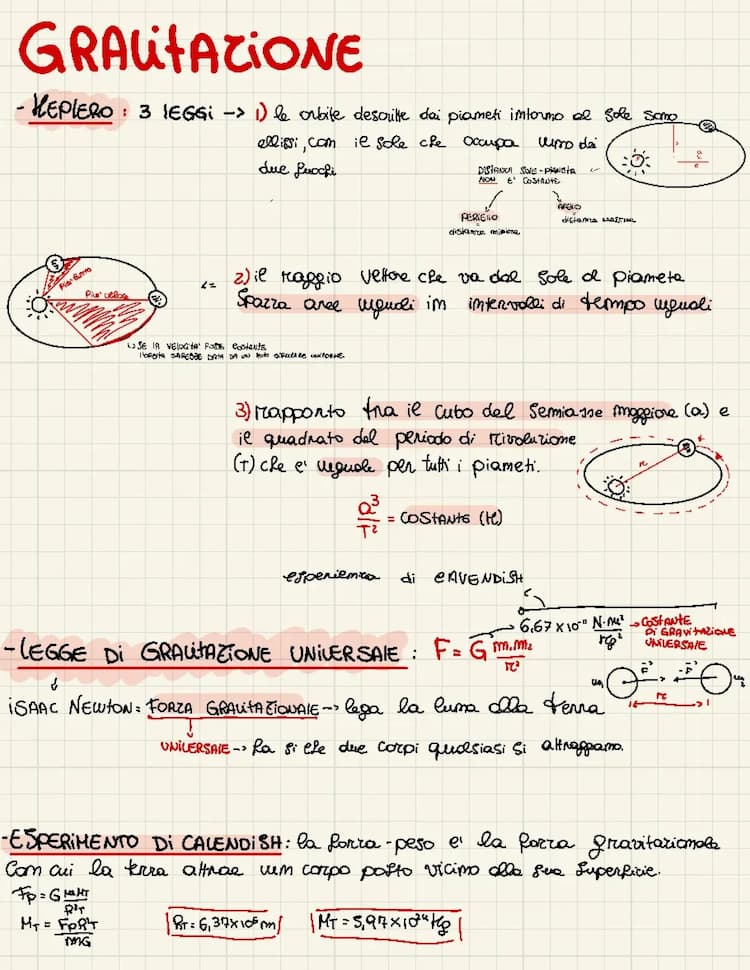 GRAVITAZIONE
- KEPLERO : 3 LEGGI -> 1) le orbite descritte dai pianeti intorno al Sole sono
ellissi, con il sole che occupa uno dei
due fuochi
DISTANZA SOLE-PIANETA
NON E' COSTANTE
PERIELIO
distanza minima
AFELIO
distanza massima
2) il raggio vettore che va dal Sole al pianeta
Spazza aree uguali in intervalli di tempo uguali
Più lento
Più veloce
SE LA VELOCITA' FOSSE COSTANTE
L'ORBITA SAREBBE DATA DA UN MOTO CIRCOLARE UNIFORME
3) rapporto tra il cubo del Semiasse maggiore (a) e
il quadrato del periodo di rivoluzione
(T) che e' uguale per tutti i pianeti.
r
a³/T² = COSTANTE (K)
esperienza di CAVENDISH
6,67 x 10⁻¹¹ N·m²/kg² -> COSTANTE
DI GRAVITAZIONE
UNIVERSALE
- LEGGE DI GRAVITAZIONE UNIVERSALE : F = G m₁m₂/r²
m₁ F -F m₂
r
ISAAC NEWTON = FORZA GRAVITAZIONALE -> lega la luna alla terra
UNIVERSALE -> fa si che due corpi qualsiasi si attraggano.
- ESPERIMENTO DI CAVENDISH : la forza-peso e' la forza gravitazionale
Con cui la terra attrae un corpo posto vicino alla sua superficie.
Fp = G mMT/R²T
MT = FpR²T/mG
RT = 6,37 x 10⁶ m
MT = 5,97 x 10²⁴ Kg